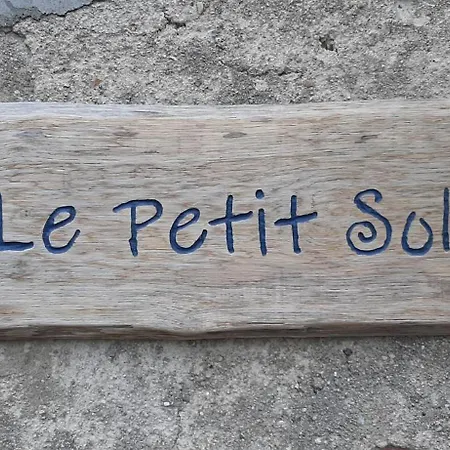 Le Petit Sol